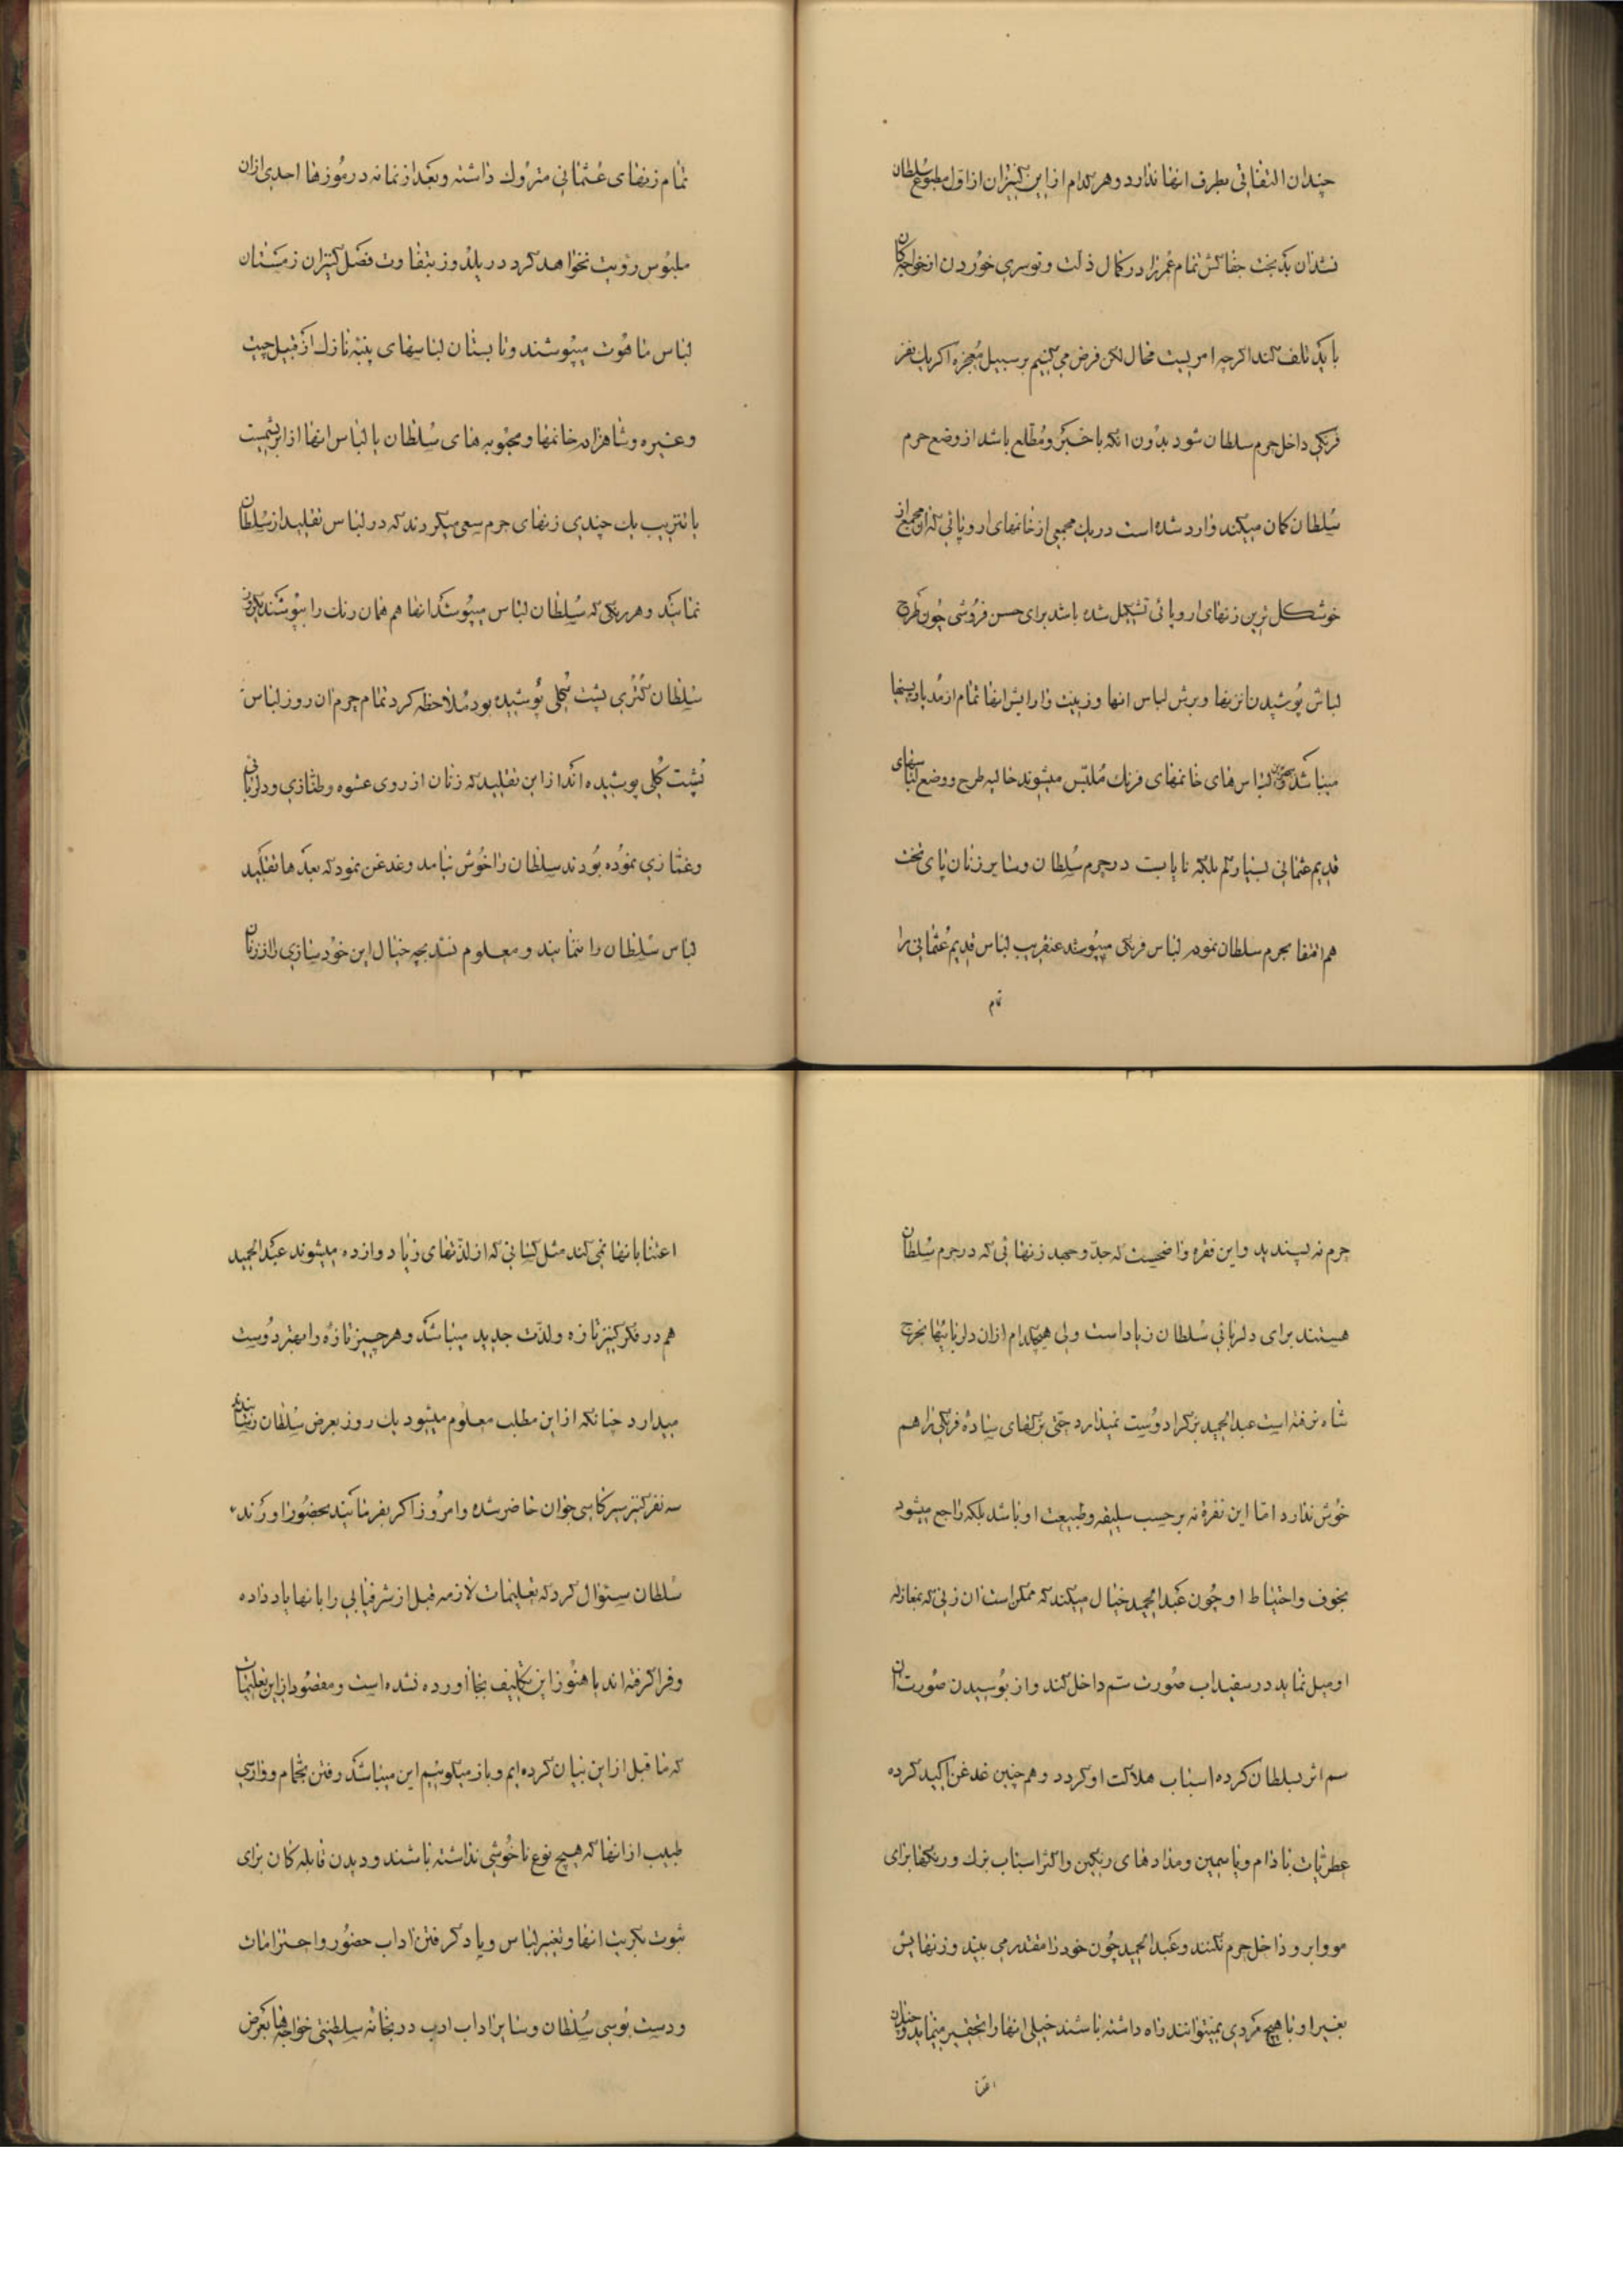 چندان التفاتی بطرف انها ندارد و هر کدام از این کنیزان از اول مطبوع سلطان
نشدان بدبخت جفاکش تمام عمر را در کمال ذلت و توسری خوردن از خواجه کان
باید تلف کند اکرچه امریست محال لکن فرض می کنیم بر سبیل معجزه اکر یک نفر
فرنکی داخل حرم سلطان شود بدون انکه با خبر و مطلع باشد از وضع حرم
سلطان کمان میکند وارد شده است در یک مجمعی از خانمهای اروپائی که ان مجمع از
خوشکل ترین زنهای اروپائی تشکیل شده باشد برای حسن فروشی چون طرح
لباس پوشیدن زنها و برش لباس انها و زینت و ارایش انها تمام از مد پاریس انجا
میباشد لباس های خانمهای فرنک ملبس میشوند حالیه طرح و وضع لباسهای
قدیم عثمانی بسیار کم بلکه نایابست در حرم سلطان و سایر زنان پای تخت
هم اقتفا بحرم سلطان نموده لباس فرنکی میپوشند عنقریب لباس قدیم عثمانی را
تمام
تمام زنهای عثمانی متروک داشته و بعد از زمانه در موزها احدی ازان
ملبوس رؤیت نخواهد کرد در یلدوز بتفاوت فصل کنیزان زمستان
لباس ماهوت میپوشند و تابستان لباسهای پنبه نازک از قبیل چیت
و غیره و شاهزاده خانمها و محبوبه های سلطان یا لباس انها از ابریشمست
یا نتریب یک چندی زنهای حرم سعی میکردند که در لباس تقلید از سلطان
نمایند و هر رنکی که سلطان لباس میپوشد انها هم همان رنک را بپوشند یکروز
سلطان کتربی پشت کلی پوشیده بود ملاحظه کرد تمام حرم ان روز لباس
پشت کلی پوشیده اند از این تقلید که زنان از روی عشوه و طنازی و دلربائی
و غمازی نموده بودند سلطان را خوش نیامد و غدغن نمود که بعدها تقلید
لباس سلطان را ننمایند و معلوم نشد بچه خیال این خودسازی را از زنان
حرم نه پسندید و این فقره واضحست که جد و جهد زنهائی که در حرم سلطان
هستند برای دلربائی سلطان زیاد است ولی هیچکدام ازان دلربائیها بخرج
شاه نرفته است عبدالحمید بزک را دوست نمیدارد حتی بزکهای ساده فرنکی را هم
خوش ندارد اما این نفره نه برحسب سلیقه و طبیعت او باشد بلکه راجع میشود
بخوف و احتیاط او چون عبدالحمید خیال میکند که ممکن است ان زنی که بمغازله
او میل نماید در سفیداب صورت سم داخل کند و از بوسیدن صورت ان
سم اثر بسلطان کرده اسباب هلاکت او کردد و هم چنین غدغن اکید کرده
عطریات بادام و یاسمین و مدادهای رنکین و اکثر اسباب بزک و رنکها برای
مو و ابرو داخل حرم نکنند و عبدالحمید چون خود را مقتدر می بیند و زنهایش
بغیر او با هیچ مردی نمیتوانند راه داشته باشند خیلی انها را تحقیر مینماید و چندان
اعتنا
اعتنا بانها نمی کند مثل کسانی که از لذتهای زیاد وازده میشوند عبدالحمید
هم در فکر کنیز تازه و لذت جدید میباشد و هر چیز تازه را بهتر دوست
میدارد چنانکه از این مطلب معلوم میشود یک روز بعرض سلطان رسانیدند
سه نفر کنیز سرکاسی جوان حاضر شده و امروز اکر بفرمائید بحضور اورند
سلطان سئوال کرد که تعلیمات لازمه قبل از شرفیابی را بانها یاد داده
و فرا کرفته اند یا هنوز این تکلیف بجا اورده نشده است و مقصود از این تعلیمات
که ما قبل از این بیان کرده ایم و باز میکوئیم این میباشد رفتن بحمام و وارسی
طبیب از انها که هیچ نوع ناخوشی نداشته باشند و دیدن قابله کان برای
ثبوت بکریت انها و تغییر لباس و یاد کرفتن اداب حضور و احترامات
و دست بوسی سلطان و سایر اداب ادب در بخانه سلطنتی خواجه ها بعرض